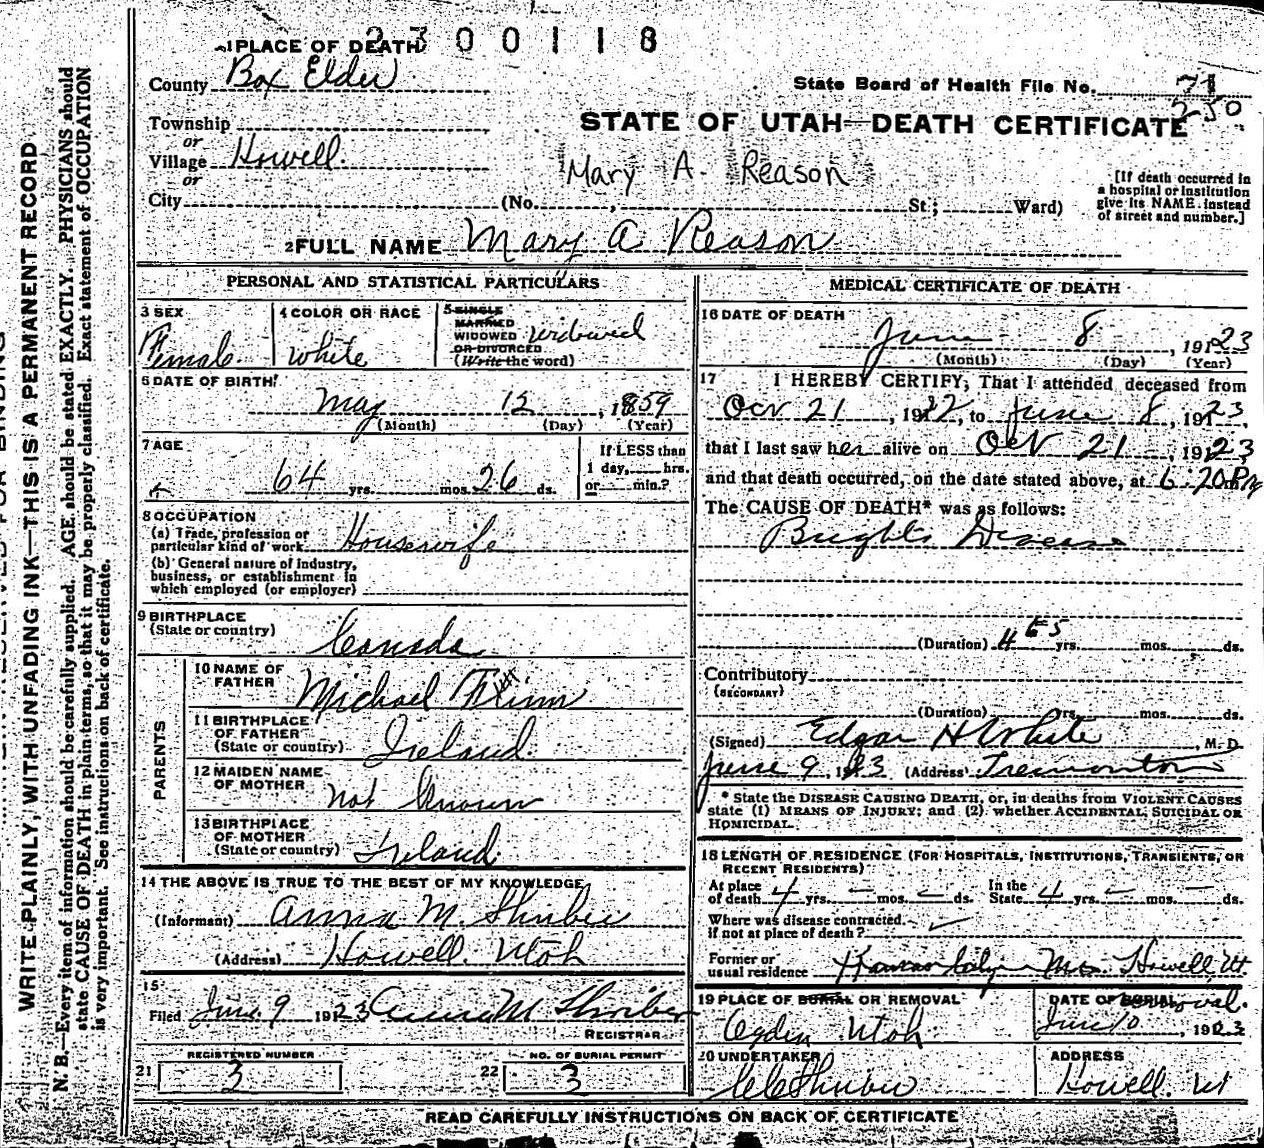 2300118
1 PLACE OF DEATH
County Box Elder
State Board of Health File No. 71
250
Township
or
Village Howell.
or
City (No. , St.; Ward)
STATE OF UTAH—DEATH CERTIFICATE
Mary A. Reason
[If death occurred in
a hospital or institution
give its NAME instead
of street and number.]
2 FULL NAME Mary A Reason
PERSONAL AND STATISTICAL PARTICULARS
3 SEX
Female
4 COLOR OR RACE
White
5 SINGLE
MARRIED
WIDOWED
OR DIVORCED
(Write the word)
widowed
6 DATE OF BIRTH
May 12, 1859
(Month) (Day) (Year)
7 AGE
64 yrs. mos. 26 ds.
If LESS than
1 day, hrs.
or min.?
8 OCCUPATION
(a) Trade, profession or
particular kind of work Housewife
(b) General nature of Industry,
business, or establishment in
which employed (or employer)
9 BIRTHPLACE
(State or country) Canada
PARENTS
10 NAME OF
FATHER Michael Flinn
11 BIRTHPLACE
OF FATHER
(State or country) Ireland
12 MAIDEN NAME
OF MOTHER not known
13 BIRTHPLACE
OF MOTHER
(State or country) Ireland
14 THE ABOVE IS TRUE TO THE BEST OF MY KNOWLEDGE
(Informant) Anna M. Shriber
(Address) Howell. Utah
15
Filed June 9 1923 Anna M Shriber
REGISTRAR
REGISTERED NUMBER
21 3
NO. OF BURIAL PERMIT
22 3
MEDICAL CERTIFICATE OF DEATH
16 DATE OF DEATH
June 8, 1923
(Month) (Day) (Year)
17 I HEREBY CERTIFY, That I attended deceased from
Oct 21, 1922, to June 8, 1923
that I last saw her alive on Oct 21, 1923
and that death occurred, on the date stated above, at 6:20 PM
The CAUSE OF DEATH* was as follows:
Brights Disease
(Duration) 4 yrs. mos. ds.
Contributory
(SECONDARY)
(Duration) yrs. mos. ds.
(Signed) Edgar H White, M. D.
June 9, 1923 (Address) Tremonton
* State the DISEASE CAUSING DEATH, or, in deaths from VIOLENT CAUSES
state (1) MEANS OF INJURY; and (2) whether ACCIDENTAL, SUICIDAL OR
HOMICIDAL.
18 LENGTH OF RESIDENCE (FOR HOSPITALS, INSTITUTIONS, TRANSIENTS, OR
RECENT RESIDENTS)
At place
of death 4 yrs. – mos. – ds. In the
State 4 yrs. – mos. – ds.
Where was disease contracted
if not at place of death?
Former or
usual residence Kansas City Mo. Howell, Ut
19 PLACE OF BURIAL OR REMOVAL
Ogden Utah.
DATE OF BURIAL removal.
June 10, 1923
20 UNDERTAKER
ADDRESS
Howell. Ut
READ CAREFULLY INSTRUCTIONS ON BACK OF CERTIFICATE
WRITE PLAINLY, WITH UNFADING INK—THIS IS A PERMANENT RECORD
N. B.—Every item of information should be carefully supplied. AGE should be stated EXACTLY. PHYSICIANS should
state CAUSE OF DEATH in plain terms, so that it may be properly classified. Exact statement of OCCUPATION
is very important. See instructions on back of certificate.